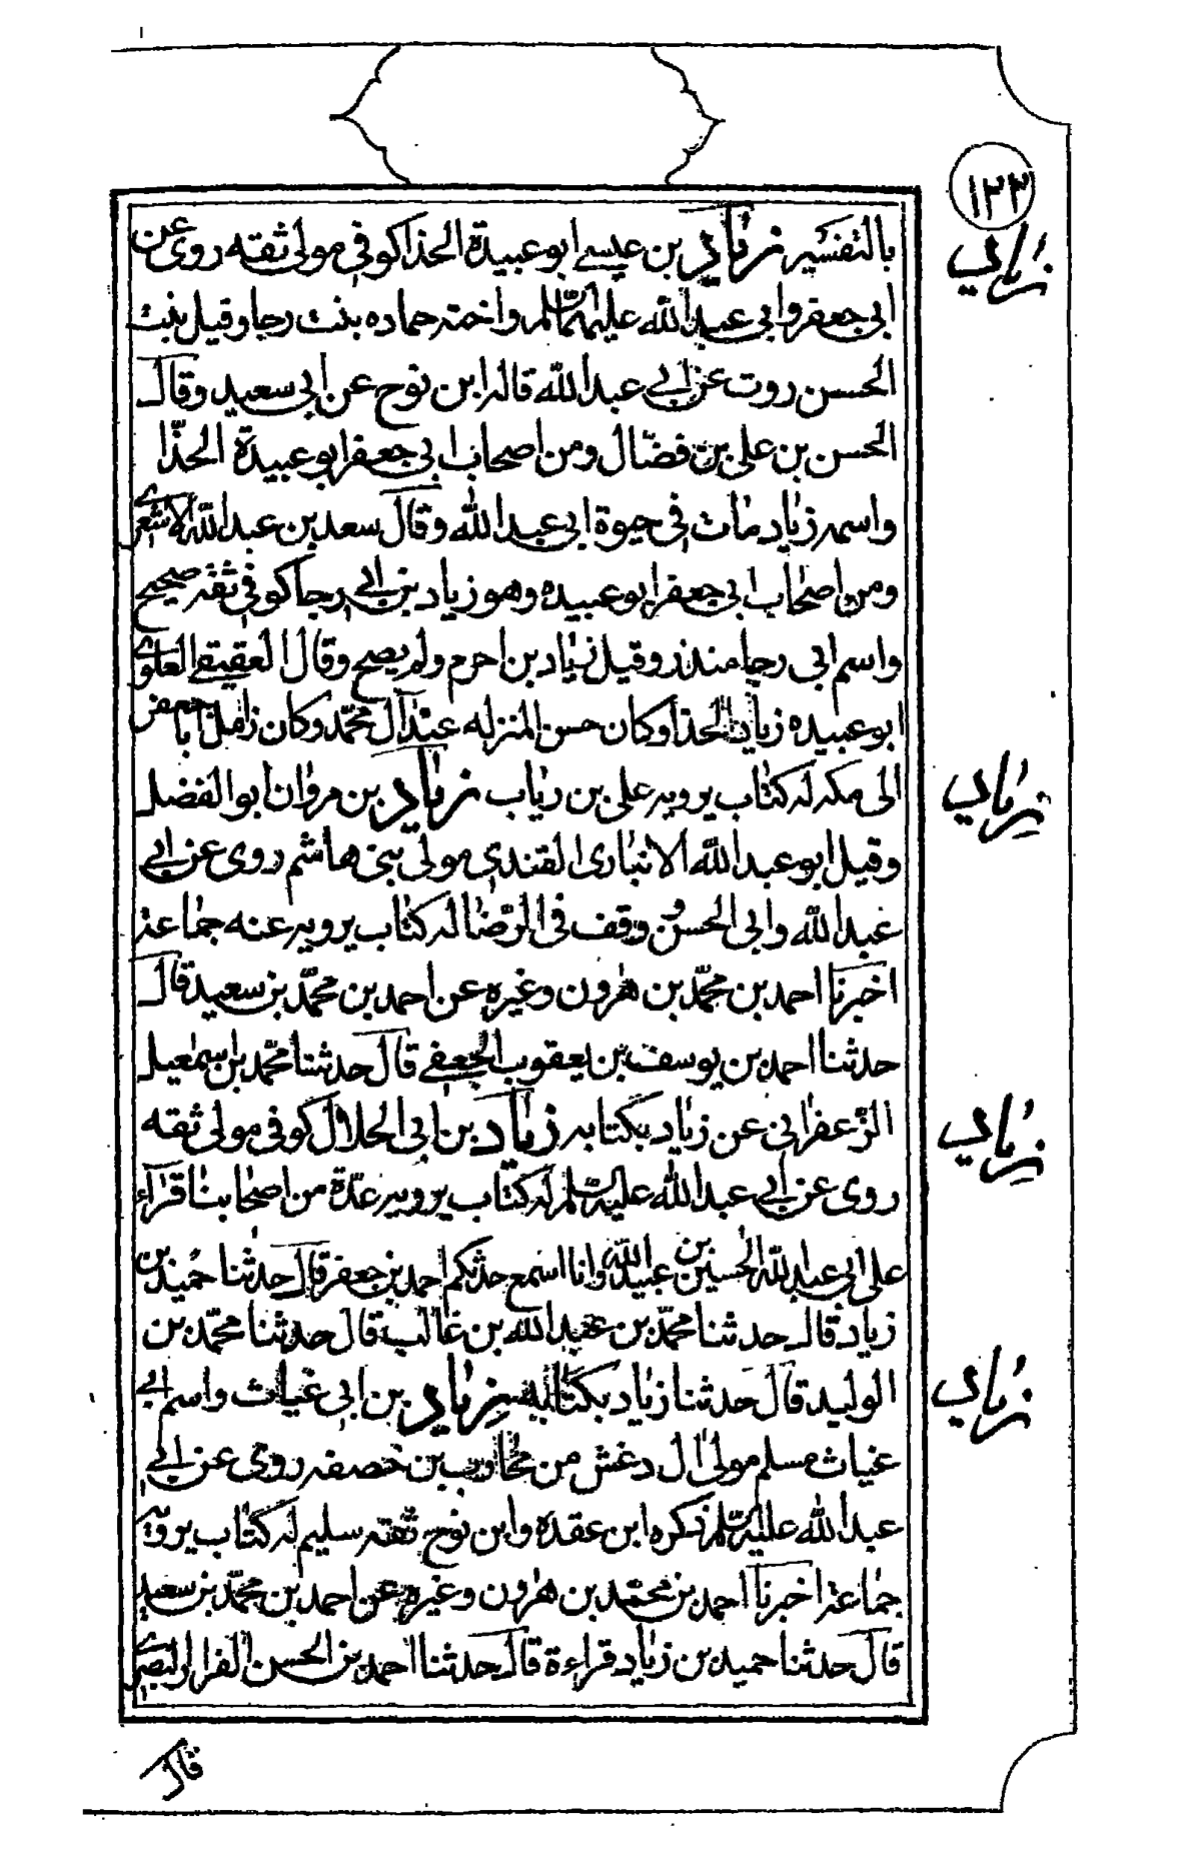 ١٢٣
زياد
بالتفسير زياد بن عيسى ابو عبيدة الحذا كوفي مولى ثقه روى عن
ابي جعفر وابي عبد الله عليهما السلم واخته حماده بنت رجا وقيل بنت
الحسن روت عن ابي عبد الله قاله ابن نوح عن ابي سعيد وقال
الحسن بن علي بن فضّال ومن اصحاب ابي جعفر ابو عبيدة الحذّا
واسمه زياد مات في حيوة ابي عبد الله وقال سعد بن عبد الله الاشعري
ومن اصحاب ابي جعفر ابو عبيده وهو زياد بن ابي رجا كوفي ثقة صحيح
واسم ابي رجا منذر وقيل زياد بن اخرم ولم يصح وقال العقيقي العلوي
ابو عبيده زياد الحذا وكان حسن المنزله عند آل محمّد وكان زامل ابا جعفر
زياد
الى مكه له كتاب يرويه علي بن رياب زياد بن مروان ابو الفضل
وقيل ابو عبد الله الانباري القندي مولى بني هاشم روى عن ابي
عبد الله وابي الحسن ووقف في الرّضا له كتاب يرويه عنه جماعة
اخبرنا احمد بن محمّد بن هرون وغيره عن احمد بن محمّد بن سعيد قال
حدثنا احمد بن يوسف بن يعقوب الجعفي قال حدثنا محمّد بن اسمعيل
زياد
الزعفراني عن زياد بكتابه زياد بن ابي الحلال كوفي مولى ثقه
روى عن ابي عبد الله عليه السلم له كتاب يرويه عدّة من اصحابنا قراءة
على ابي عبد الله الحسين بن عبيد الله وانا اسمع حدثكم احمد بن جعفر قال حدثنا حميد بن
زياد قال حدثنا محمّد بن عبد الله بن غالب قال حدثنا محمّد بن
زياد
الوليد قال حدثنا زياد بكتابه زياد بن ابي غياث واسم ابي
غياث مسلم مولى ال دغش من محارب بن خصفه روى عن ابي
عبد الله عليه السلم ذكره ابن عقدة وابن نوح ثقه سليم له كتاب يرويه
جماعة اخبرنا احمد بن محمد بن هرون وغيره عن احمد بن محمّد بن سعيد
قال حدثنا حميد بن زياد قراءة قال حدثنا احمد بن الحسن البصري
قال